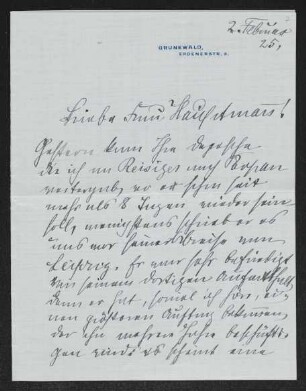 2. Februar
25.
GRUNEWALD,
Liebe Frau Hauptmann!
Gestern kam Ihre Depesche
die ich an Reisiger nach
weitergab, wo er schon seit
mehr als 8 Tagen wieder sein
soll, wenigstens schrieb er es
uns vor seiner Abreise von
Leipzig. Er war sehr befriedigt
von seinem dortigen Aufenthalt,
denn er hat, soviel ich
größeren Auftrag bekommen,
der ihn mehrere Jahre beschäfti-
gen wird es scheint eine